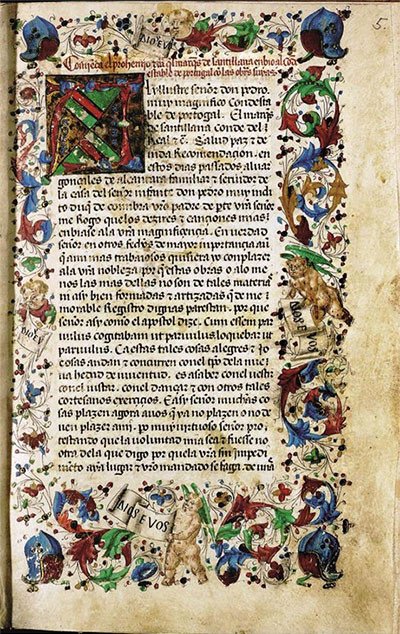 5.
DIOS E VOS
Comiença el prohemio q̃l marq̃s de santillana enbio al cõde
stable de portugal cõ las obras suyas
Illustre señor don pedro.
muy magnifico Condesta
ble de portogal. El marq̃s
de santillana conde del
Real &c. Salud paz z de
uida Recomendaçion. en
estos dias pasados aluar
gonçales de alcantara familiar z seruidor de
la casa del señor infante don pedro muy incli
to duq̃ de coimbra vr̃o padre de p̃te vr̃a señor
me Rogo que los dezires z cançiones mias
enbiase ala vr̃a magnificençia. En verdad
señor en otros fechos de mayor importançia aũ
q̃ ami mas trabaiosos quisiera yo conplazer
ala vr̃a nobleza. por q̃ estas obras o alo me
nos las mas dellas no son de tales materia
ni asy bien formadas z artizadas q̃ de me
morable Registro dignas parescan. por que
señor asy como el apostol dize. Cum essem par
uulus cogitabam ut paruulus loquebar ut
paruulus. Ca estas tales cosas alegres z jo
cosas andan z concurren conel tp̃o dela nue
ua hedad de iuuentud. es asaber conel uestir
conel iustar. conel dançar z con otros tales
cortesanos exerçiçios. E asy señor muchas co
sas plazen agora auos q̃ ya no plazen o no de
uen plazer ami. po muy virtuoso señor pro
testando que la voluntad mia sea z fuesse no
otra dela que digo por quela vr̃a sin impedi
mēto aya lugar z vr̃o mandado se faga. de vna
DIOS E
DIOS E VOS
DIOS E VOS